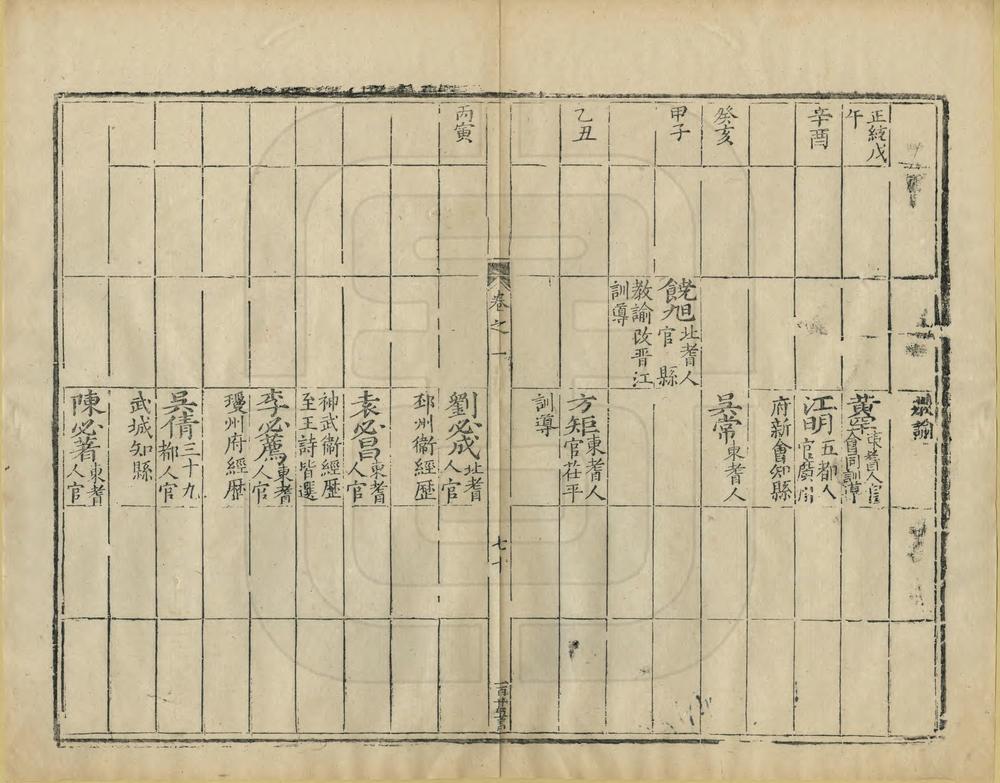 正統戊
午
辛酉
癸亥
甲子
乙丑
饒旭北耆人
官縣
教諭改晉江
訓導
東耆人官
會同訓導
江明五都人
官廣州
府新會知縣
吳常東耆人
方矩東耆人
官茌平
訓導
卷之一
七十
丙寅
劉必成北耆
人官
邳州衞經歷
袁必昌東耆
人官
神武衞經歷
至王詩皆選
李必薦東耆
人官
瓊州府經歷
吳倩三十九
都人官
武城知縣
陳必著東耆
人官